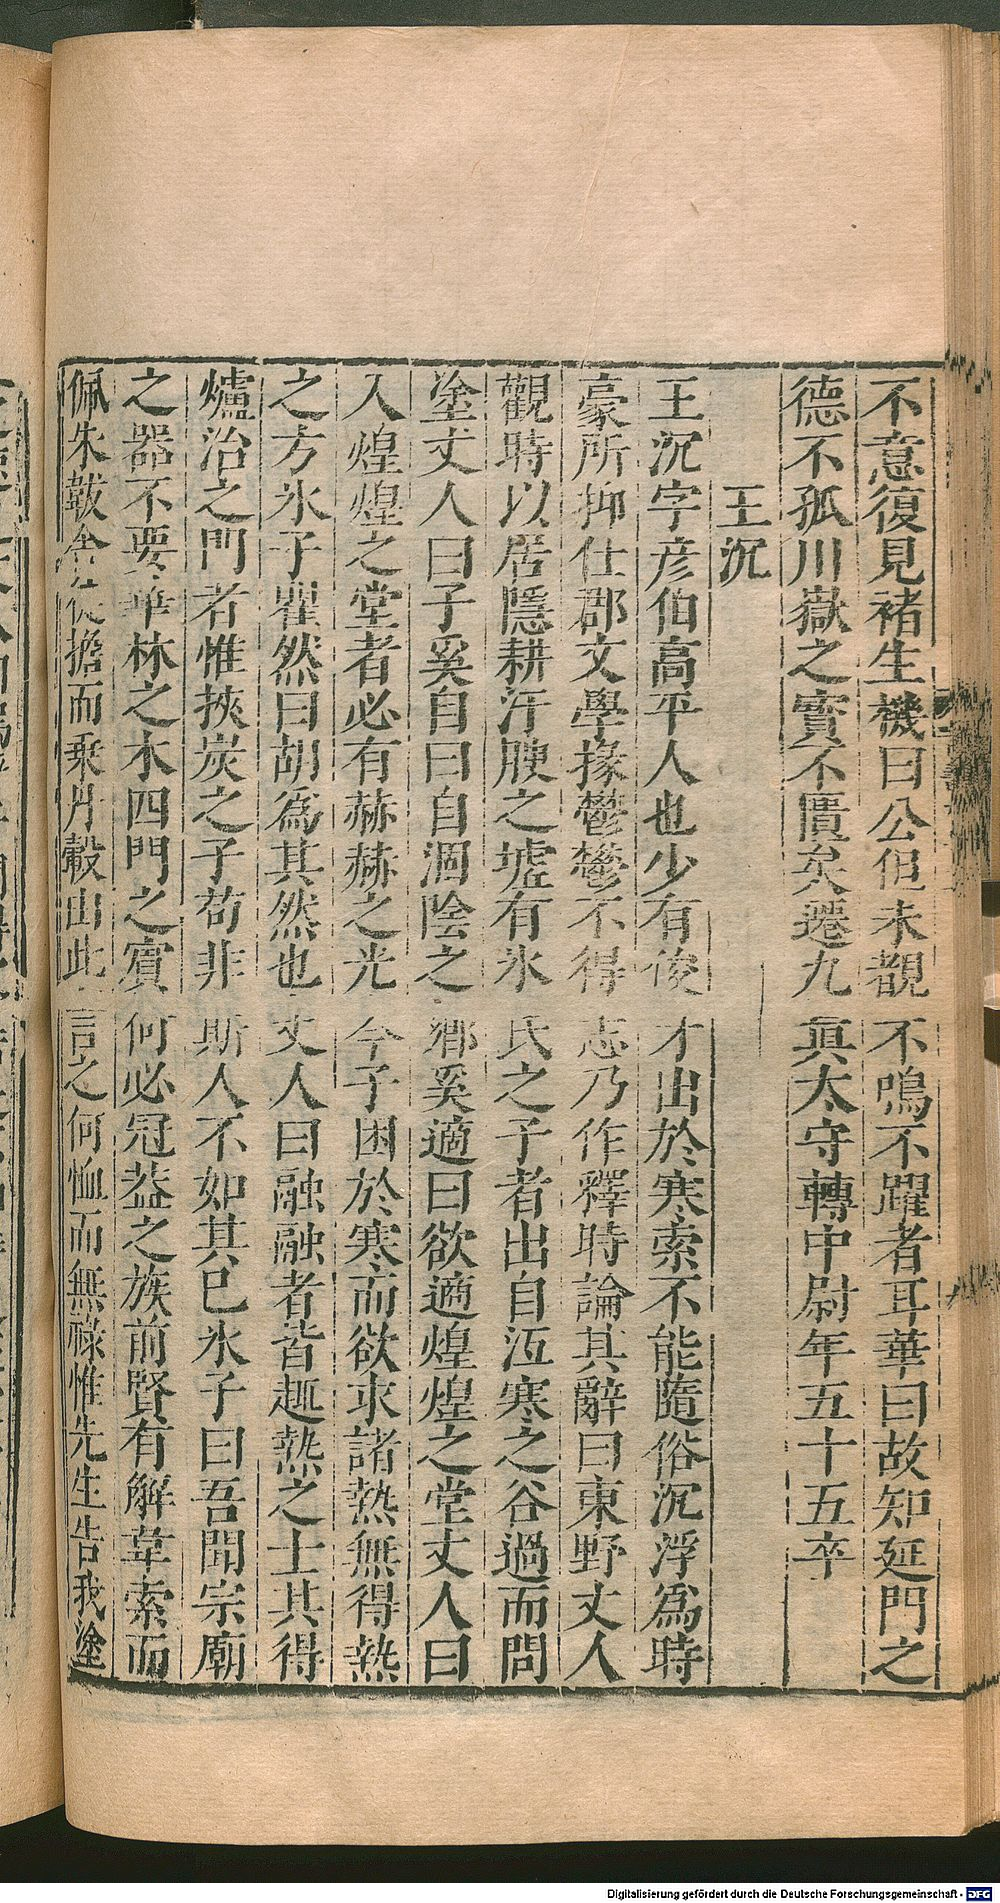 不意復見褚生機曰公但未覩不鳴不躍者耳華曰故知延門之
德不孤川嶽之寶不匱矣遷九眞太守轉中尉年五十五卒
王沉
王沉字彦伯高平人也少有俊才出於寒索不能隨俗沉浮爲時
豪所抑仕郡文學掾鬱鬱不得志乃作釋時論其辭曰東野丈人
觀時以居隱耕汙腴之墟有氷氏之子者出自沍寒之谷過而問
塗丈人曰子奚自曰自涸陰之鄉奚適曰欲適煌煌之堂丈人曰
入煌煌之堂者必有赫赫之光今子困於寒而欲求諸熱無得熱
之方氷子瞿然曰胡爲其然也丈人曰融融者皆趣熱之士其得
爐冶之門者惟挾炭之子苟非斯人不如其已氷子曰吾聞宗廟
之器不要華林之木四門之賓何必冠葢之族前賢有解韋索而
佩朱韍舍徒擔而乗丹轂由此言之何恤而無祿惟先生告我塗
Digitalisierung gefördert durch die Deutsche Forschungsgemeinschaft - DFG